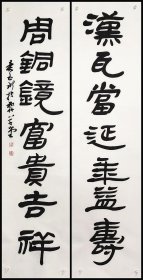 漢瓦當延年益壽
周銅鏡富貴吉祥